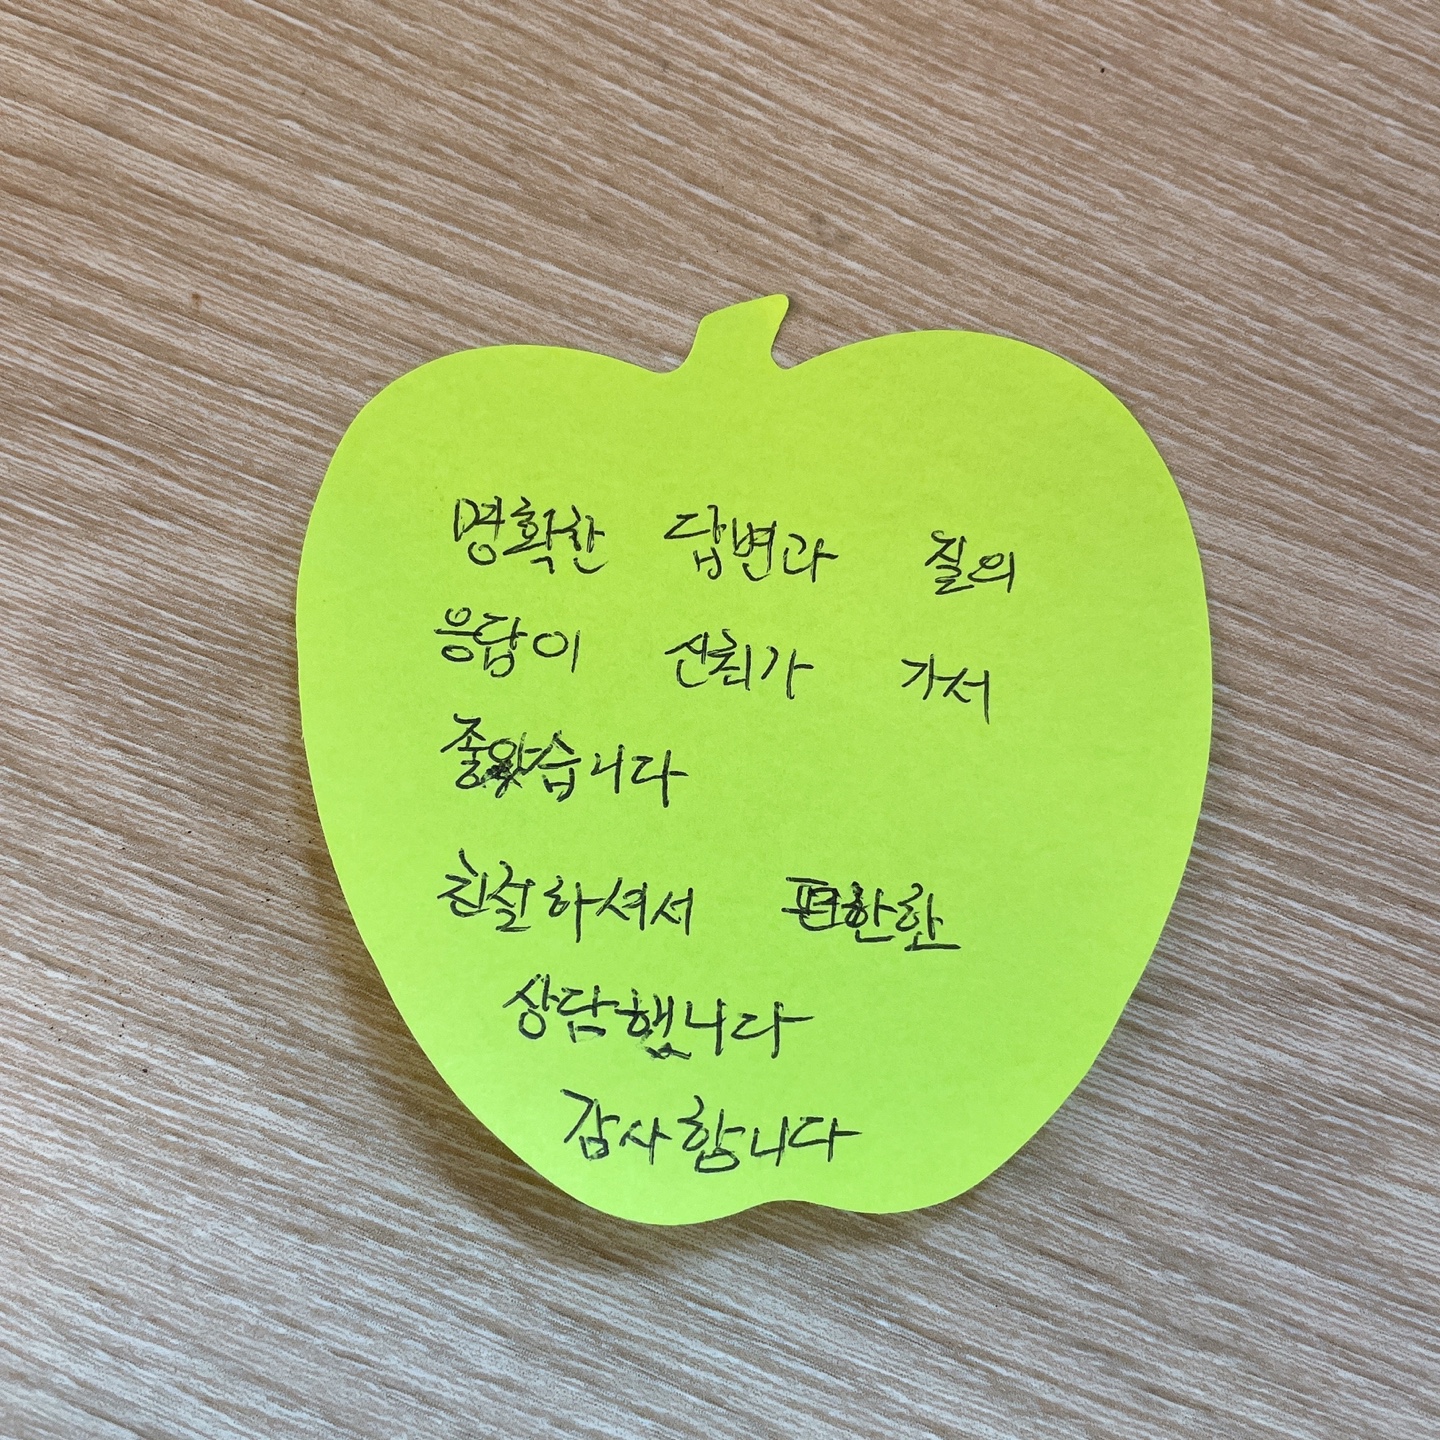 명확한 답변과 질의
응답이 신뢰가 가서
좋았습니다
친절하셔서 편한한
상담했니다
감사합니다